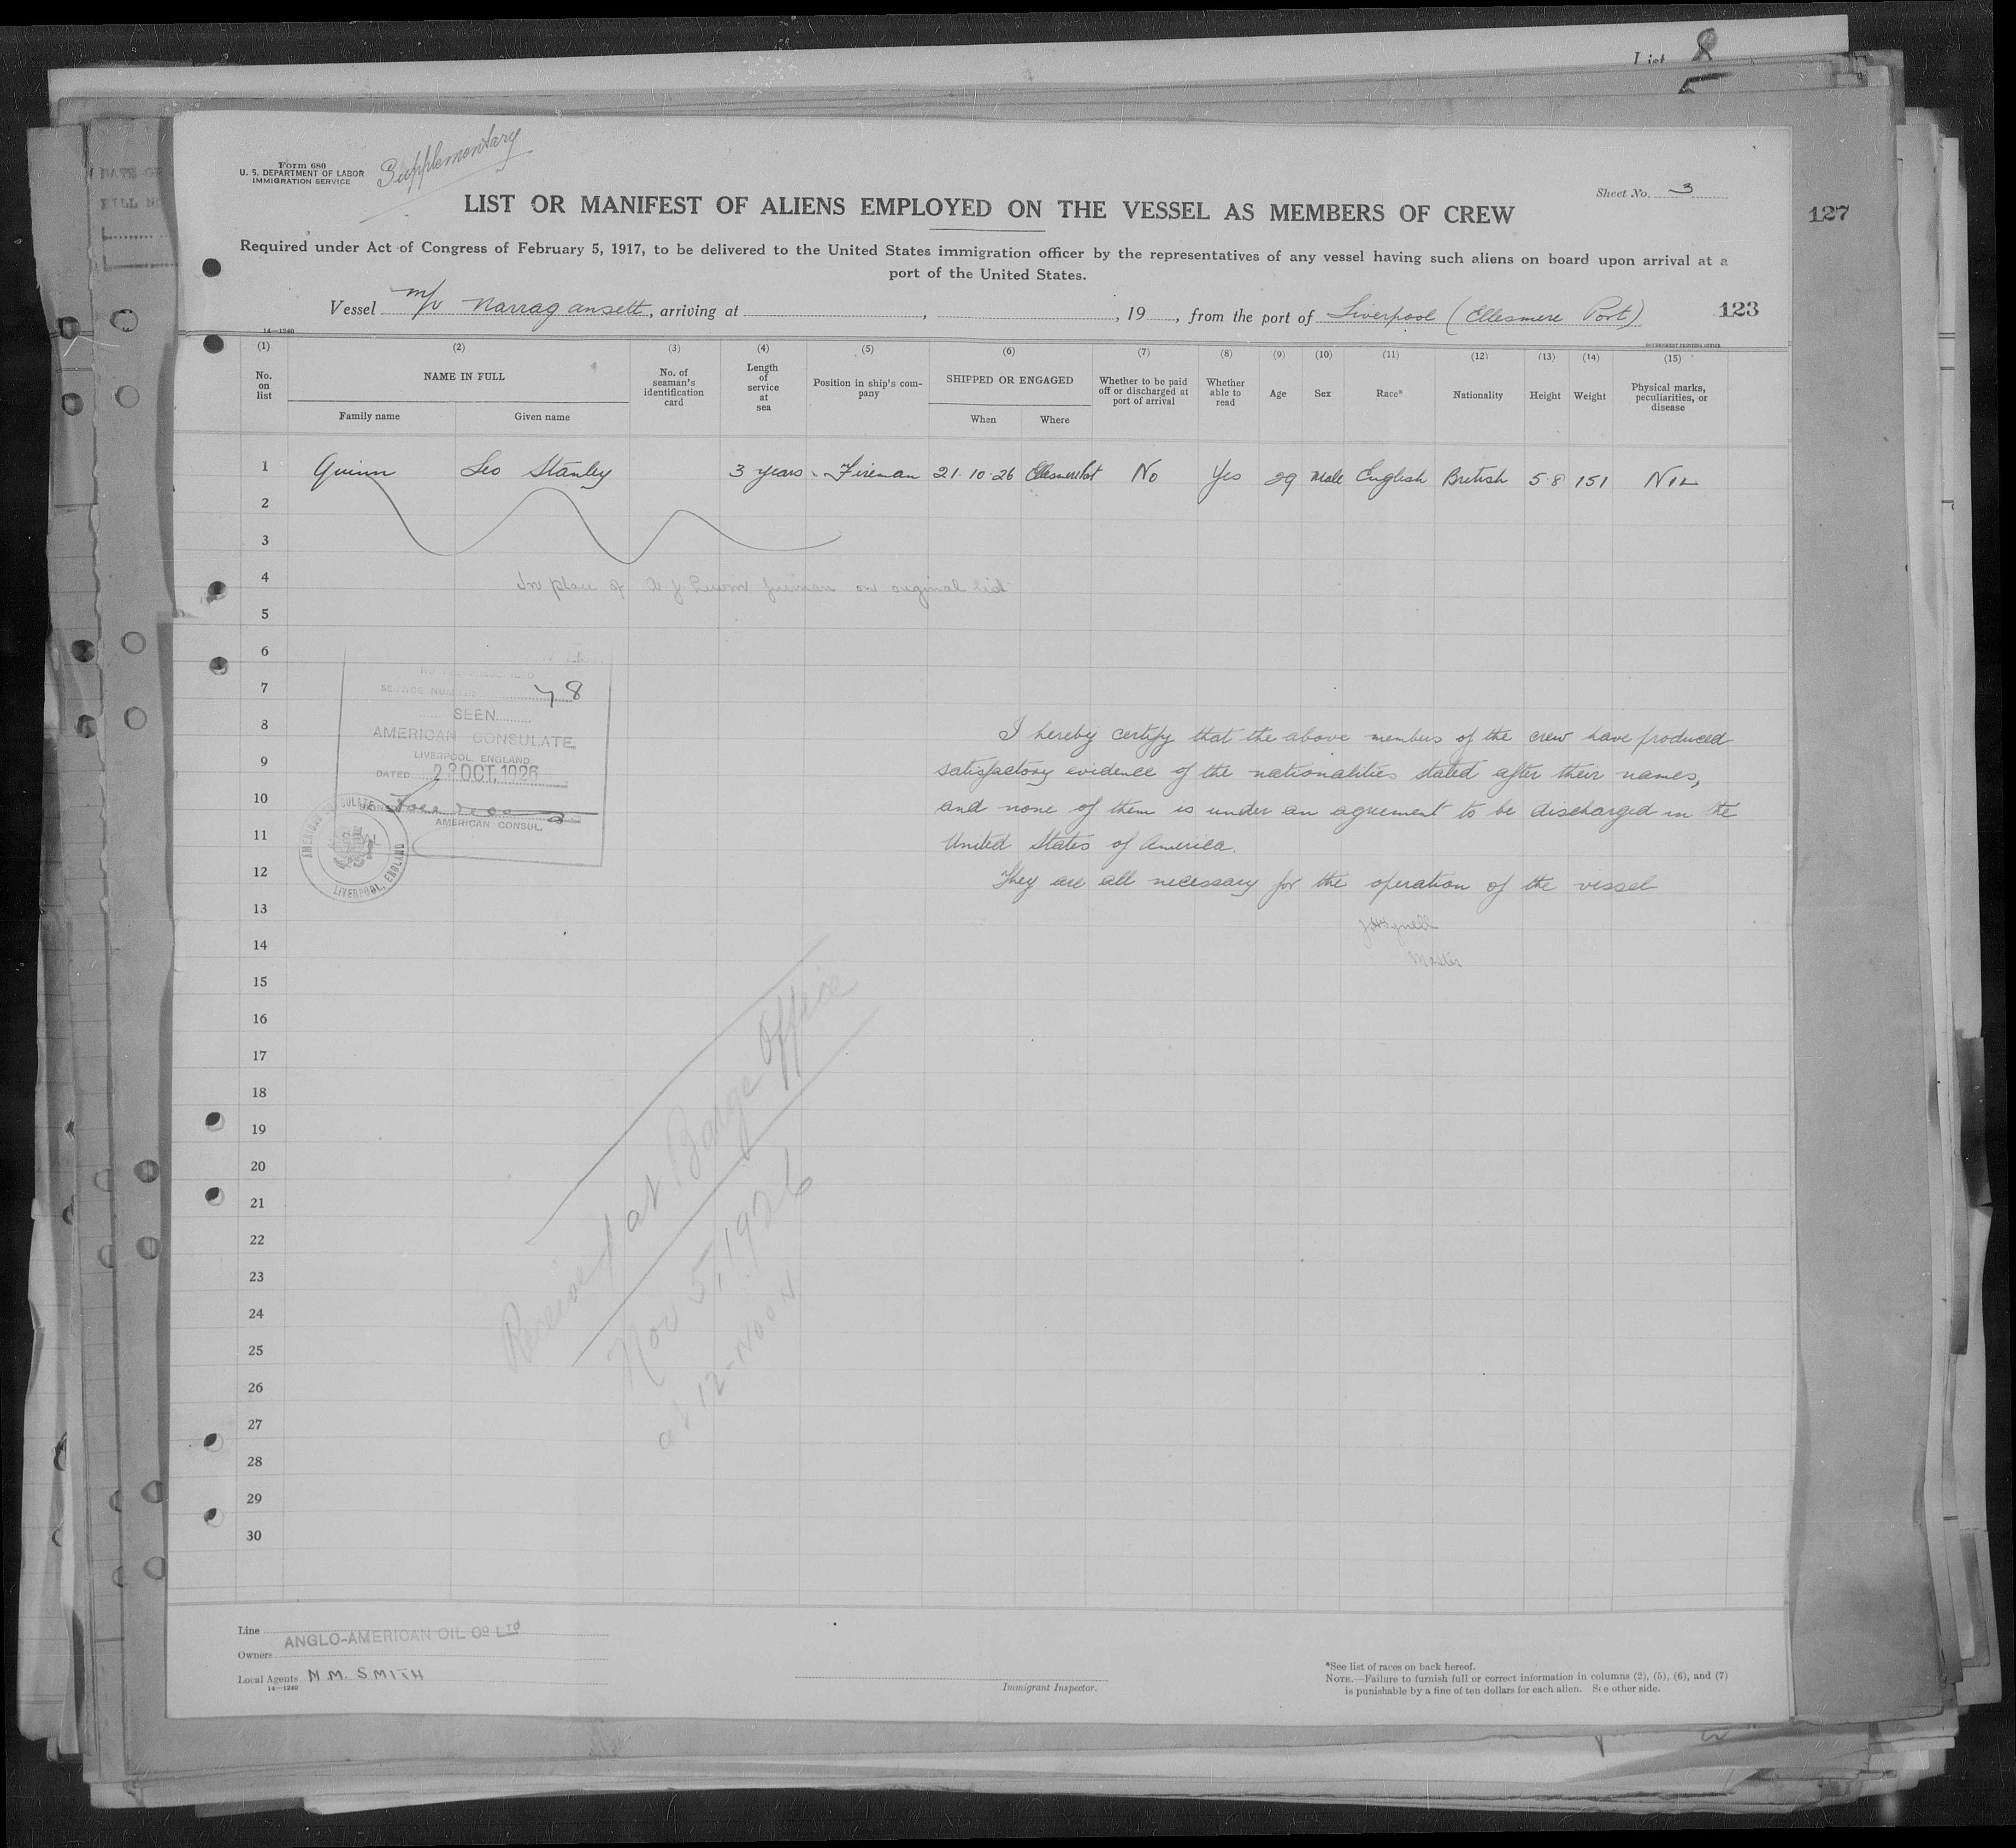 List 8
5
DATE OF
FILL NO
127
Form 680
U. S. DEPARTMENT OF LABOR
IMMIGRATION SERVICE
Supplementary
Sheet No. 3
LIST OR MANIFEST OF ALIENS EMPLOYED ON THE VESSEL AS MEMBERS OF CREW
Required under Act of Congress of February 5, 1917, to be delivered to the United States immigration officer by the representatives of any vessel having such aliens on board upon arrival at a
port of the United States.
Vessel m/v Narragansett, arriving at , , 19 , from the port of Liverpool (Ellesmere Port) 123
14—1240
GOVERNMENT PRINTING OFFICE
(1) (2) (3) (4) (5) (6) (7) (8) (9) (10) (11) (12) (13) (14) (15)
No. on list
NAME IN FULL
Family name
Given name
No. of seaman's identification card
Length of service at sea
Position in ship's company
SHIPPED OR ENGAGED
When
Where
Whether to be paid off or discharged at port of arrival
Whether able to read
Age
Sex
Race*
Nationality
Height
Weight
Physical marks, peculiarities, or disease
1 Quinn Leo Stanley 3 years Fireman 21.10.26 Ellesmere Port No Yes 29 Male English British 5 8 151 NIL
2
3
4 In place of A J fireman on original list
5
6
7
SERVICE NUMBER 78
8
SEEN
AMERICAN CONSULATE
I hereby certify that the above members of the crew have produced
9
LIVERPOOL, ENGLAND
DATED OCT, 1926
satisfactory evidence of the nationalities stated after their names,
10
SIGNED
AMERICAN CONSUL.
and none of them is under an agreement to be discharged in the
11
AMERICAN CONSULATE
LIVERPOOL, ENGLAND
United States of America.
12
They are all necessary for the operation of the vessel
13
14
Master
15
16
17
18
19
20
21
22
23
24
25
26
27
28
29
30
Received at Barge Office
Nov 5, 1926
at 12-NOON
Line
ANGLO-AMERICAN OIL Co LTD
Owners
Local Agents N.M. SMITH
14—1240
Immigrant Inspector.
*See list of races on back hereof.
NOTE.—Failure to furnish full or correct information in columns (2), (5), (6), and (7)
is punishable by a fine of ten dollars for each alien. See other side.